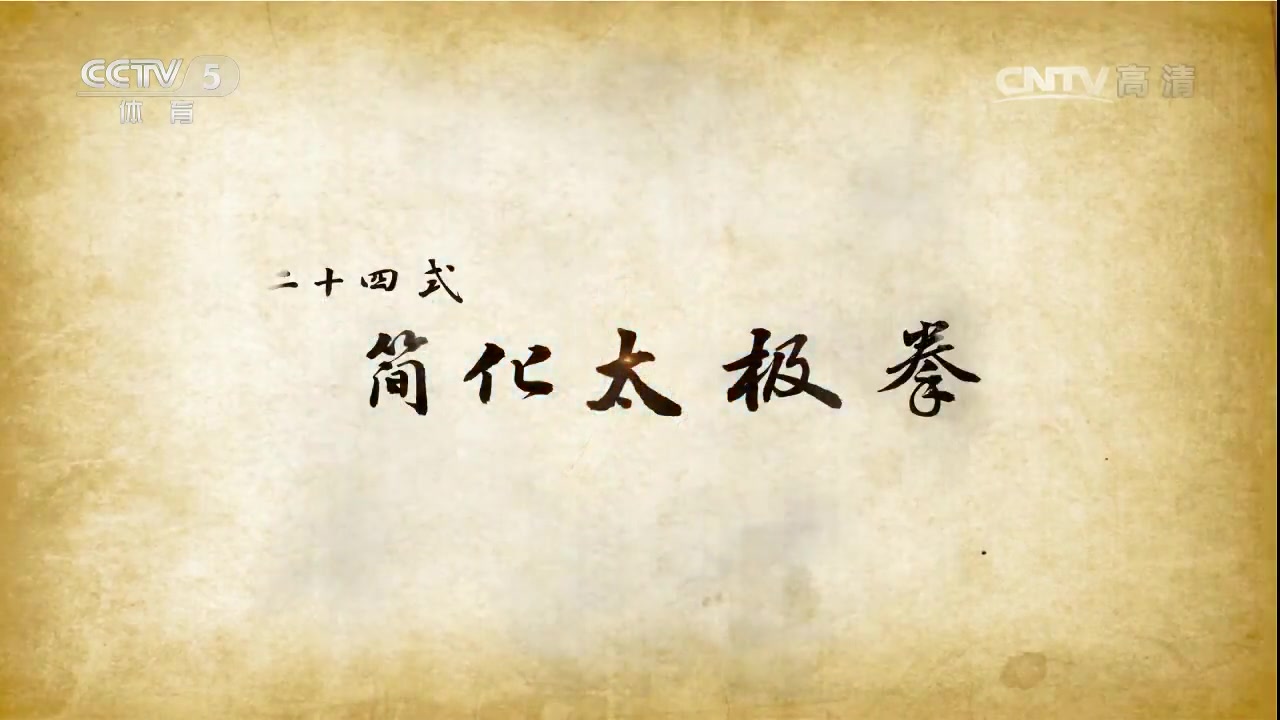 CCTV 5
体育
CNTV高清
二十四式
简化太极拳